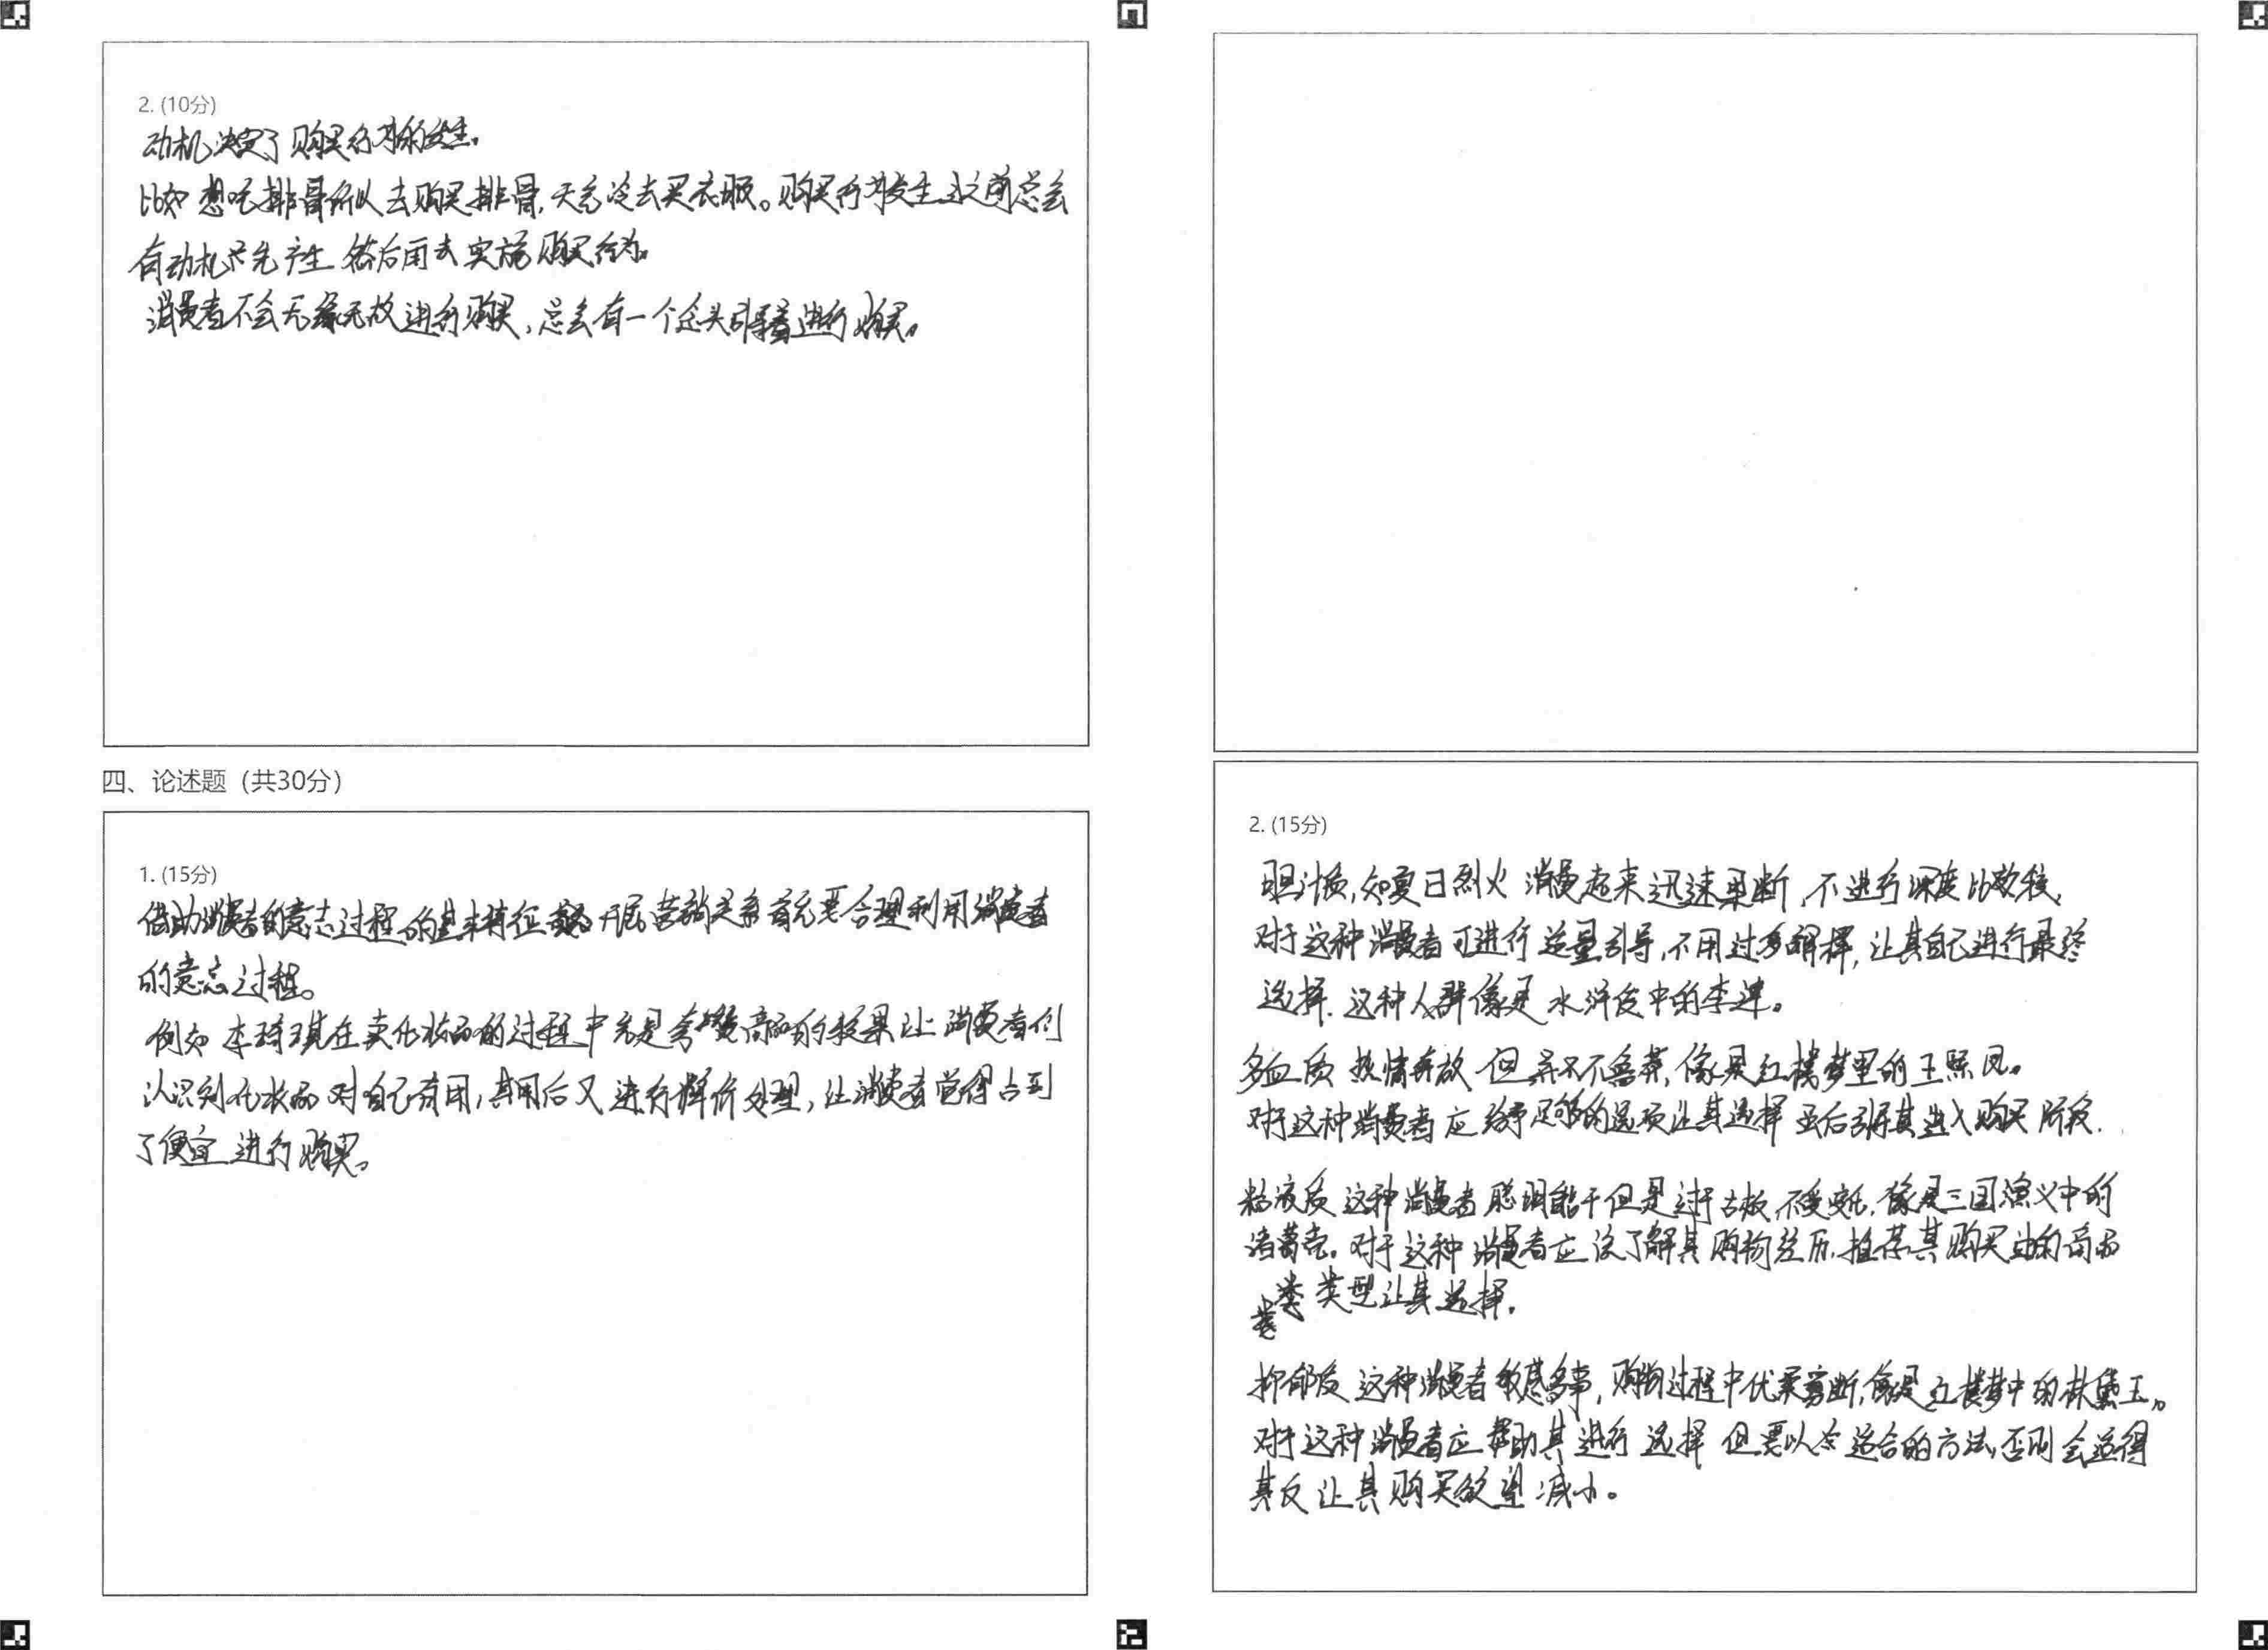 2. (10分)
动机决定了购买行为的发生。
比如 想吃排骨所以去购买排骨,天气冷去买衣服。购买行为发生之前总会
有动机先产生 然后再去实施购买行为。
消费者不会无缘无故进行购买,总会有一个念头引导着进行购买。
四、论述题（共30分）
1. (15分)
借助消费者的意志过程的基本特征 开展营销关系首先要合理利用消费者
的意志过程。
例如 李琦琪在卖化妆品的过程中先是夸赞商品的效果让消费者们
认识到化妆品对自己有用,其用后又进行降价处理,让消费者觉得占到
了便宜 进行购买。
2. (15分)
胆汁质,如夏日烈火 消费起来迅速果断,不进行深度比较,
对于这种消费者可进行适量引导,不用过多解释,让其自己进行最终
选择.这种人群像是水浒传中的李逵。
多血质 热情奔放 但并不鲁莽,像是红楼梦里的王熙凤。
对于这种消费者应给予足够的选项让其选择 至后引导其进入购买阶段.
粘液质 这种消费者聪明能干但是过于古板,不爱变化,像是三国演义中的
诸葛亮。对于这种消费者应该了解其购物经历,推荐其购买过的商品
类型让其选择.
抑郁质 这种消费者敏感多事,购物过程中优柔寡断,像是红楼梦中的林黛玉。
对于这种消费者应帮助其进行选择 但要以适合的方法,否则会适得
其反 让其购买欲望减小。